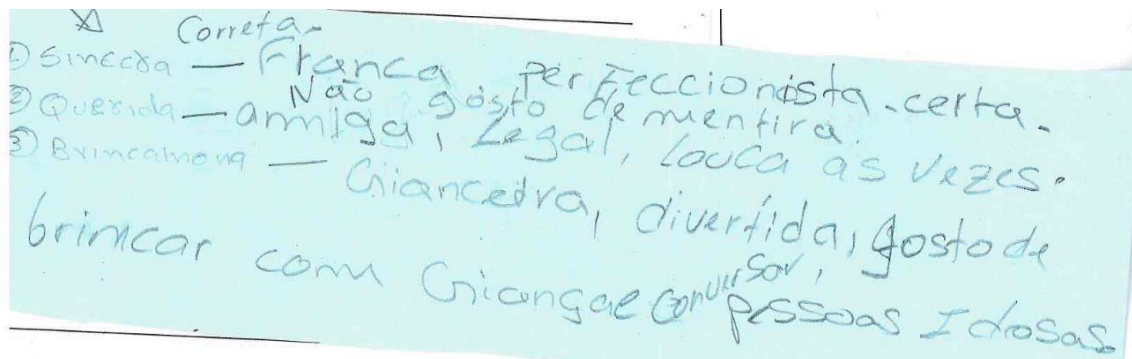 Correta.
① Sincera — Franca perfeccionista. certa.
Não gosto de mentira
② Querida — amiga, Legal, Louca as vezes.
③ Brincalhona — Criancedra, divertida, gosto de
brincar com Criança e conversar, pessoas Idosas.